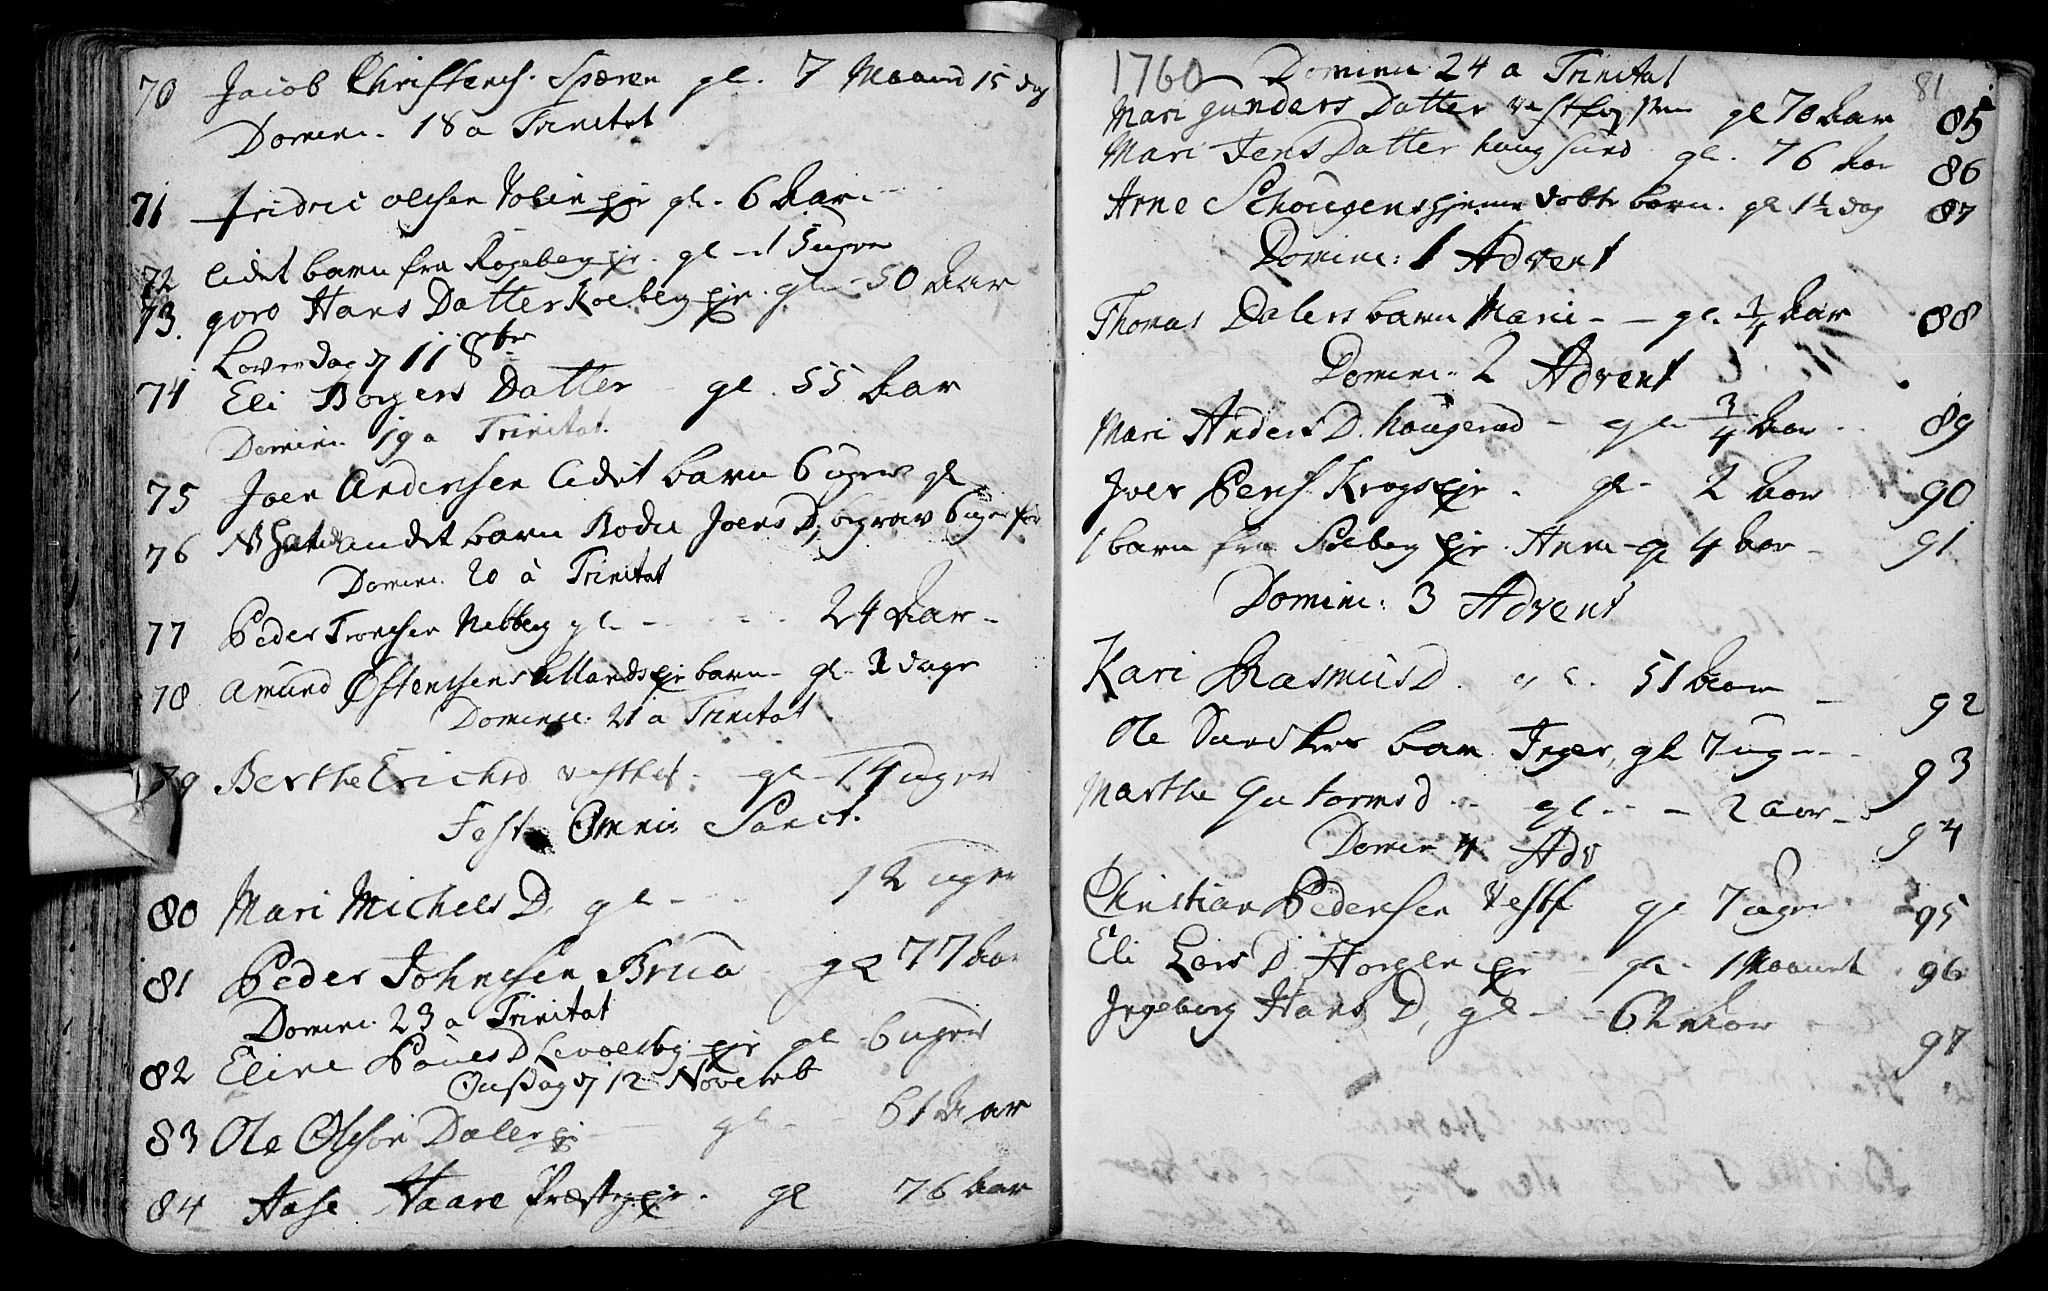 70 Jacob Christens. Spæren gl. 7 Maand 15 dag
Domini. 18 a Trinitat
71 fridric olesen Volin eje gl. 6 Aar
72 lidet barn fra Røgeberg eje. gl - 15 uger
73. goro Hans Datter Koeberg eje. gl - 50 Aar
Løverdag d 11 8br
74 Eli Borgers Datter - gl. 55 Aar
Domini. 19 a Trinitat.
75 Joen Andersen lidet barn 6 uger gl
76 andet barn Bodil Joens D, begrav 6 uger før
Domini. 20 à Trinitat
77 Peder Tronsen Nebberg gl - - - 24 Aar -
78 Amund Østensens eje barn - gl. 2 dage
Domini. 21 a Trinitat
79 Berthe Erichsd vestfos - gl - 14 uger
Fest Omni: Sanct.
80 Mari Michels D. gl - 12 uger
81 Peder Johnsen Brua gl 77 Aar
Domini. 23 a Trinitat
82 Eline Povels D eje gl - 6 uger
Onsdag d 12 Novemb
83 Ole Olson Daler ej - gl - 61 Aar
84 Aase Haare Præste eje. gl 76 Aar
1760 Domini 24 a Trinitat 81
Mari gunders Datter vestfossen gl 70 Aar 85
Mari Jens Datter haugsund. gl. 76 Aar 86
Arne Schougens hjemme døbte barn. gl 1½ dag 87
Domini: 1 Advent
Thomas Dalers barn Mari - - gl. ¼ Aar 88
Domini. 2 Advent
Mari Anders D. haugerud - gl ¾ Aar 89
Joer Pers. Krogs eje. gl - 2 Aar 90
1 barn fra eje. Anne - gl 4 Aar - 91
Domini: 3 Advent
Kari Rasmus D. gl. 51 Aar - 92
Ole barn Inger, gl 7 uger - 93
Marthe Guttorms d - gl - - 2 aar - 94
Domin 4 Adv
Christian Pedersen Vestf gl 7 uger 95
Eli Lars D. Horgen eje - gl - 1 Maanet 96
Ingeborg Hans D, gl - - 62 Aar 97